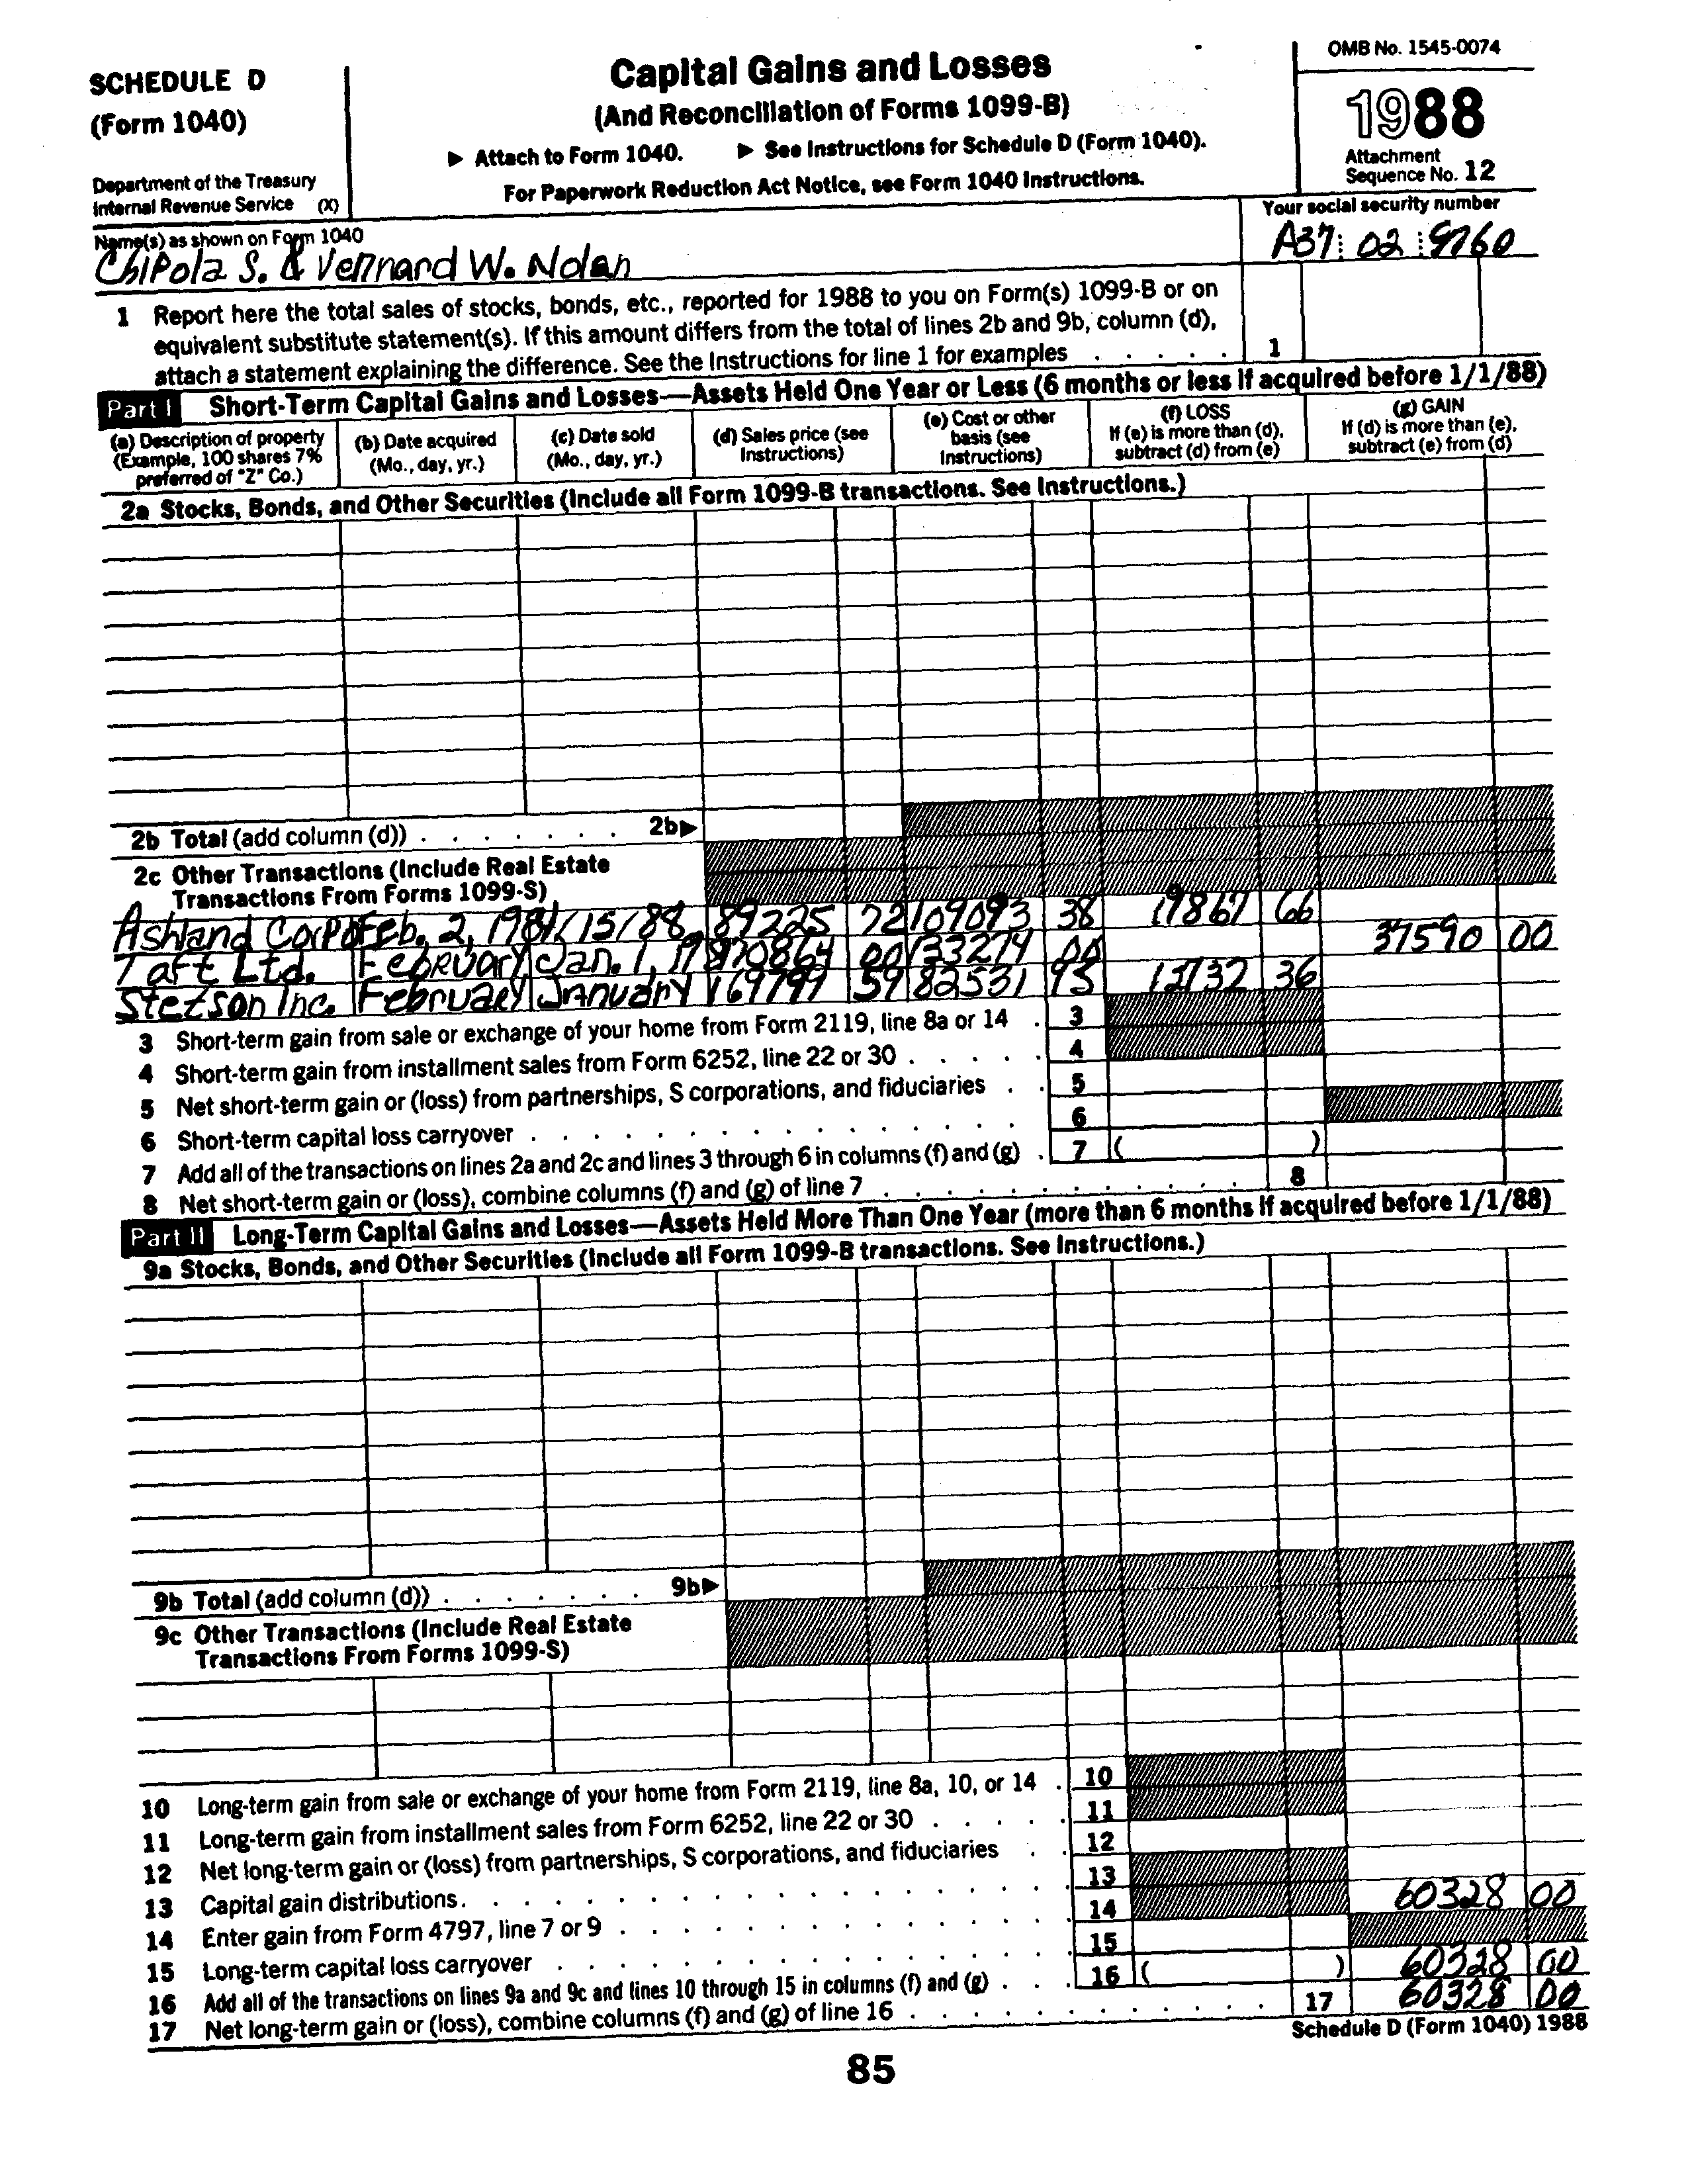 SCHEDULE D
(Form 1040)
Department of the Treasury
Internal Revenue Service (X)
Capital Gains and Losses
(And Reconciliation of Forms 1099-B)
▶ Attach to Form 1040. ▶ See Instructions for Schedule D (Form 1040).
For Paperwork Reduction Act Notice, see Form 1040 Instructions.
OMB No. 1545-0074
1988
Attachment
Sequence No. 12
Name(s) as shown on Form 1040
Chipola S. & Vennard W. Nolan
Your social security number
A37 02 9760
1 Report here the total sales of stocks, bonds, etc., reported for 1988 to you on Form(s) 1099-B or on
equivalent substitute statement(s). If this amount differs from the total of lines 2b and 9b, column (d),
attach a statement explaining the difference. See the Instructions for line 1 for examples . . . . . 1
Part I Short-Term Capital Gains and Losses—Assets Held One Year or Less (6 months or less if acquired before 1/1/88)
(a) Description of property
(Example, 100 shares 7%
preferred of "Z" Co.)
(b) Date acquired
(Mo., day, yr.)
(c) Date sold
(Mo., day, yr.)
(d) Sales price (see
Instructions)
(e) Cost or other
basis (see
Instructions)
(f) LOSS
If (e) is more than (d),
subtract (d) from (e)
(g) GAIN
If (d) is more than (e),
subtract (e) from (d)
2a Stocks, Bonds, and Other Securities (Include all Form 1099-B transactions. See Instructions.)
2b Total (add column (d)) . . . . . . . 2b▶
2c Other Transactions (Include Real Estate
Transactions From Forms 1099-S)
Ashland Feb. 2, 15/88 89225 72 109093 38 19867 66
Taft Ltd. February Jan. 1, 70864 00 33274 00 37590 00
Stetson Inc. February January 169799 59 82531 95 12732 36
3 Short-term gain from sale or exchange of your home from Form 2119, line 8a or 14 . 3
4 Short-term gain from installment sales from Form 6252, line 22 or 30 . . . . . 4
5 Net short-term gain or (loss) from partnerships, S corporations, and fiduciaries . . 5
6 Short-term capital loss carryover . . . . . . . . . . . . . . . 6
7 Add all of the transactions on lines 2a and 2c and lines 3 through 6 in columns (f) and (g) . 7 ( )
8 Net short-term gain or (loss), combine columns (f) and (g) of line 7 . . . . . . . . . . . . 8
Part II Long-Term Capital Gains and Losses—Assets Held More Than One Year (more than 6 months if acquired before 1/1/88)
9a Stocks, Bonds, and Other Securities (Include all Form 1099-B transactions. See Instructions.)
9b Total (add column (d)) . . . . . . . 9b▶
9c Other Transactions (Include Real Estate
Transactions From Forms 1099-S)
10 Long-term gain from sale or exchange of your home from Form 2119, line 8a, 10, or 14 . 10
11 Long-term gain from installment sales from Form 6252, line 22 or 30 . . . . . 11
12 Net long-term gain or (loss) from partnerships, S corporations, and fiduciaries . . 12
13 Capital gain distributions . . . . . . . . . . . . . . . . . 13
14 Enter gain from Form 4797, line 7 or 9 . . . . . . . . . . . . . 14 60328 00
15 Long-term capital loss carryover . . . . . . . . . . . . . . . 15
16 Add all of the transactions on lines 9a and 9c and lines 10 through 15 in columns (f) and (g) . . . 16 ( ) 60328 00
17 Net long-term gain or (loss), combine columns (f) and (g) of line 16 . . . . . . . . . . . . 17 60328 00
Schedule D (Form 1040) 1988
85